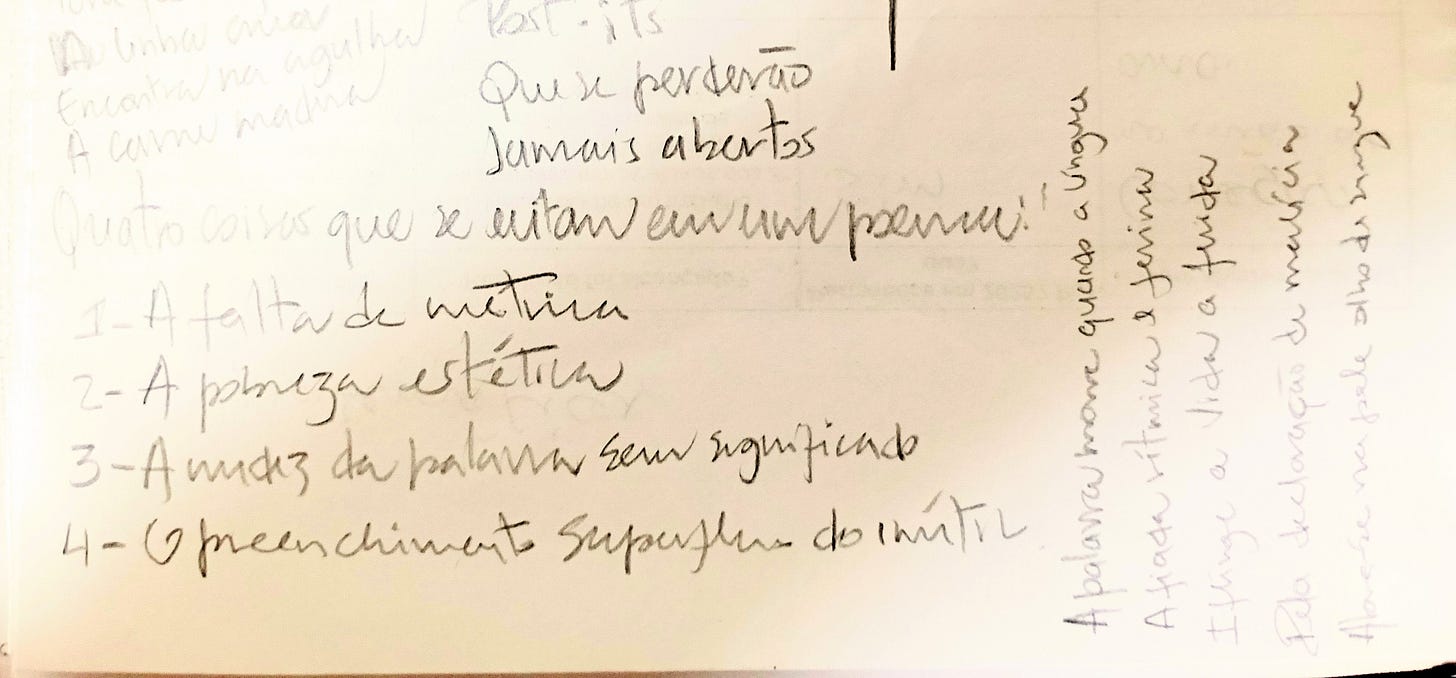 A linha única
Encontra na agulha
A carne macia
Post-its
Que se perderão
Jamais abertos
Quatro coisas que se evitam em um poema:
1- A falta de métrica
2- A pobreza estética
3- A nudez da palavra sem significado
4- O preenchimento superfluo do inútil
A palavra morre quando a língua
Afiada rítmica e ferina
Iflinge a vida a ferida
Pela declaração de malícia
Abre-se na pele olho de sangue